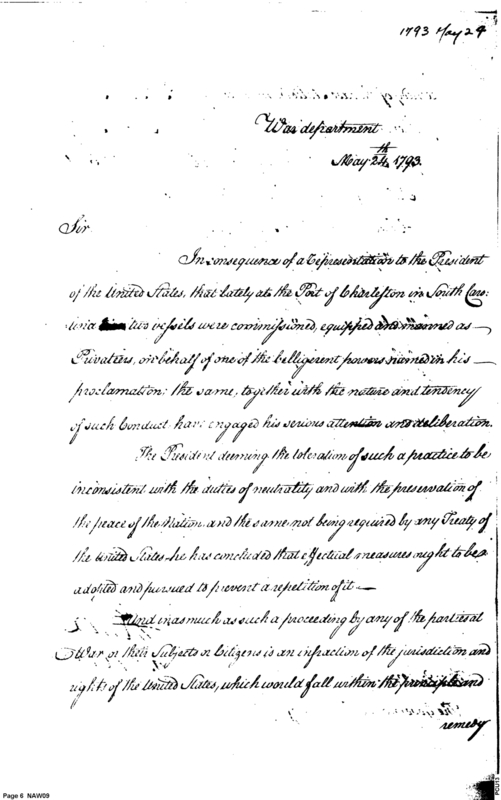 1793 May 24
War department
May 24th 1793.
Sir
In consequence of a Representation to the President
of the United States, that lately at the Port of Charleston in South Caro:
lina two vessels were commissioned, equipped and manned as
Privateers, on behalf of one of the belligerent powers named in his
proclamation: the same, together with the nature and tendency
of such Conduct have engaged his serious attention and deliberation.
The President deeming the toleration of such a practice to be
inconsistent with the duties of neutrality and with the preservation of
the peace of the Nation and the same not being required by any Treaty of
the United States, he has concluded that effectual measures ought to be
adopted and pursued to prevent a repetition of it
And inasmuch as such a proceeding by any of the parties at
War or their Subjects or Citizens is an infraction of the jurisdiction and
rights of the United States, which would fall within the principle and
remedy
Page 6 NAW09